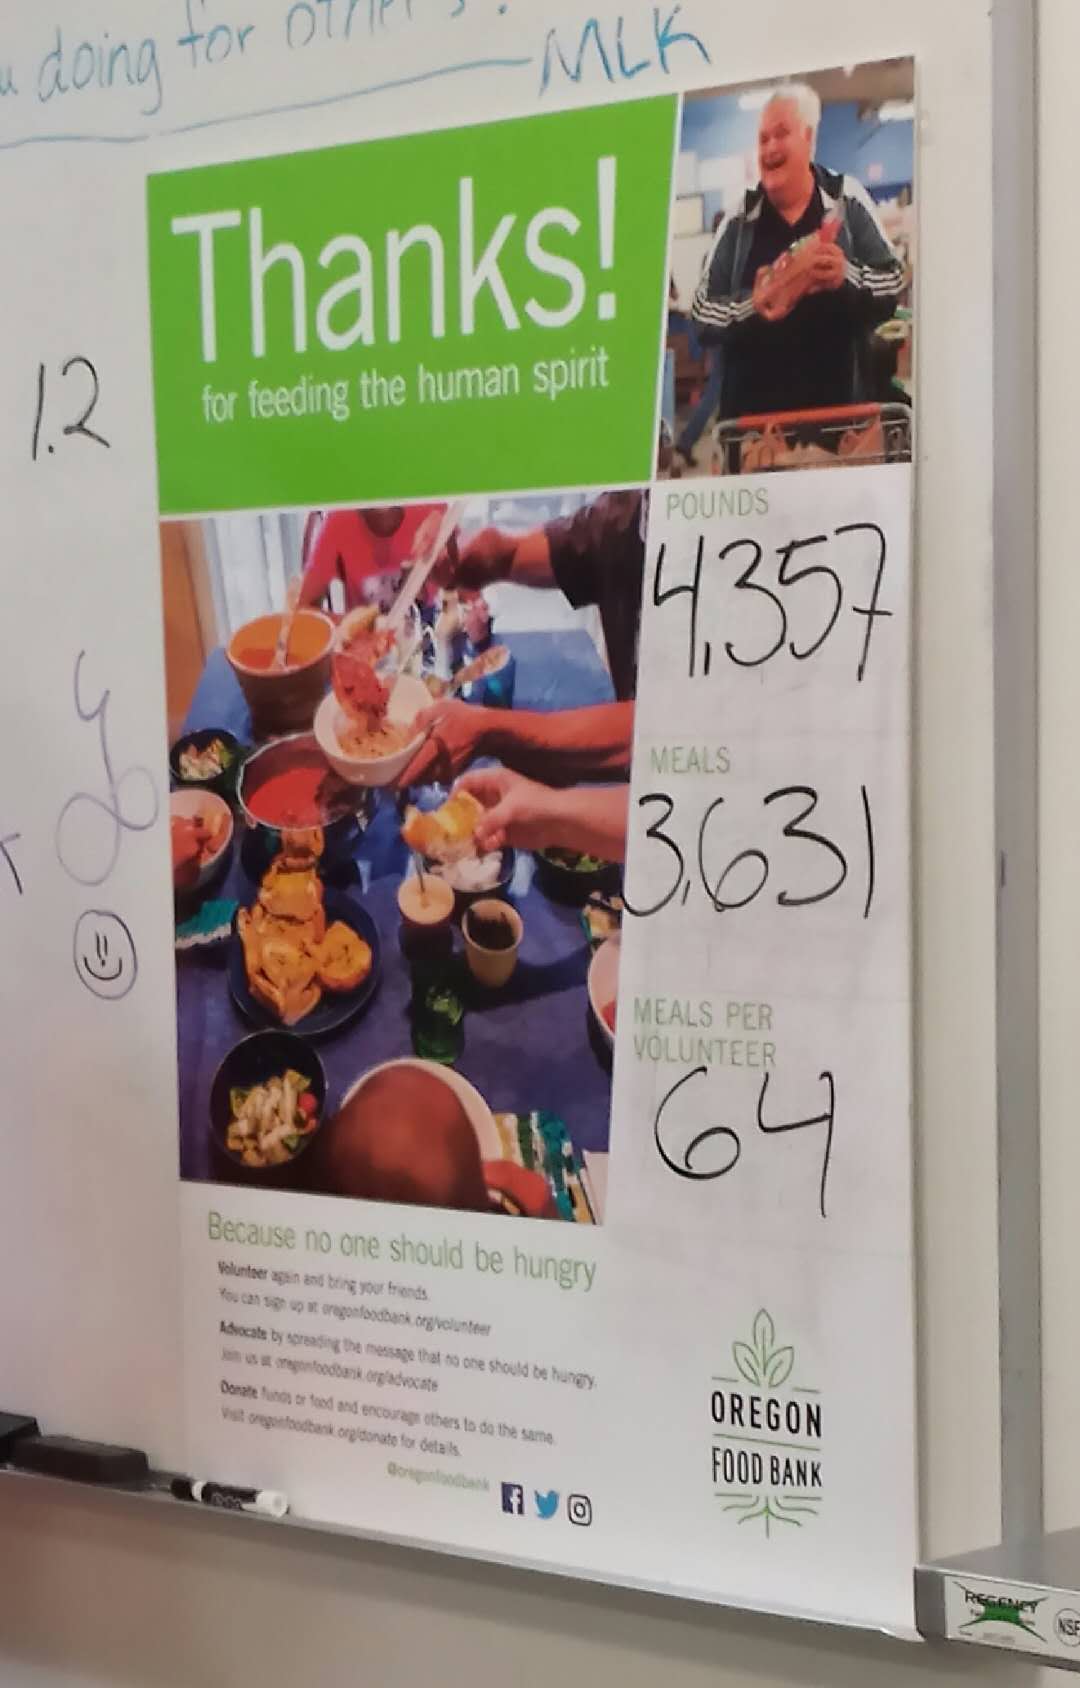 doing for others?
MLK
Thanks!
for feeding the human spirit
1.2
POUNDS
4,357
MEALS
3,631
MEALS PER
VOLUNTEER
64
Because no one should be hungry
Volunteer again and bring your friends.
You can sign up at oregonfoodbank.org/volunteer
Advocate by spreading the message that no one should be hungry.
Join us at oregonfoodbank.org/advocate
Donate funds or food and encourage others to do the same.
Visit oregonfoodbank.org/donate for details.
@oregonfoodbank
OREGON
FOOD BANK
REGENCY
NSF